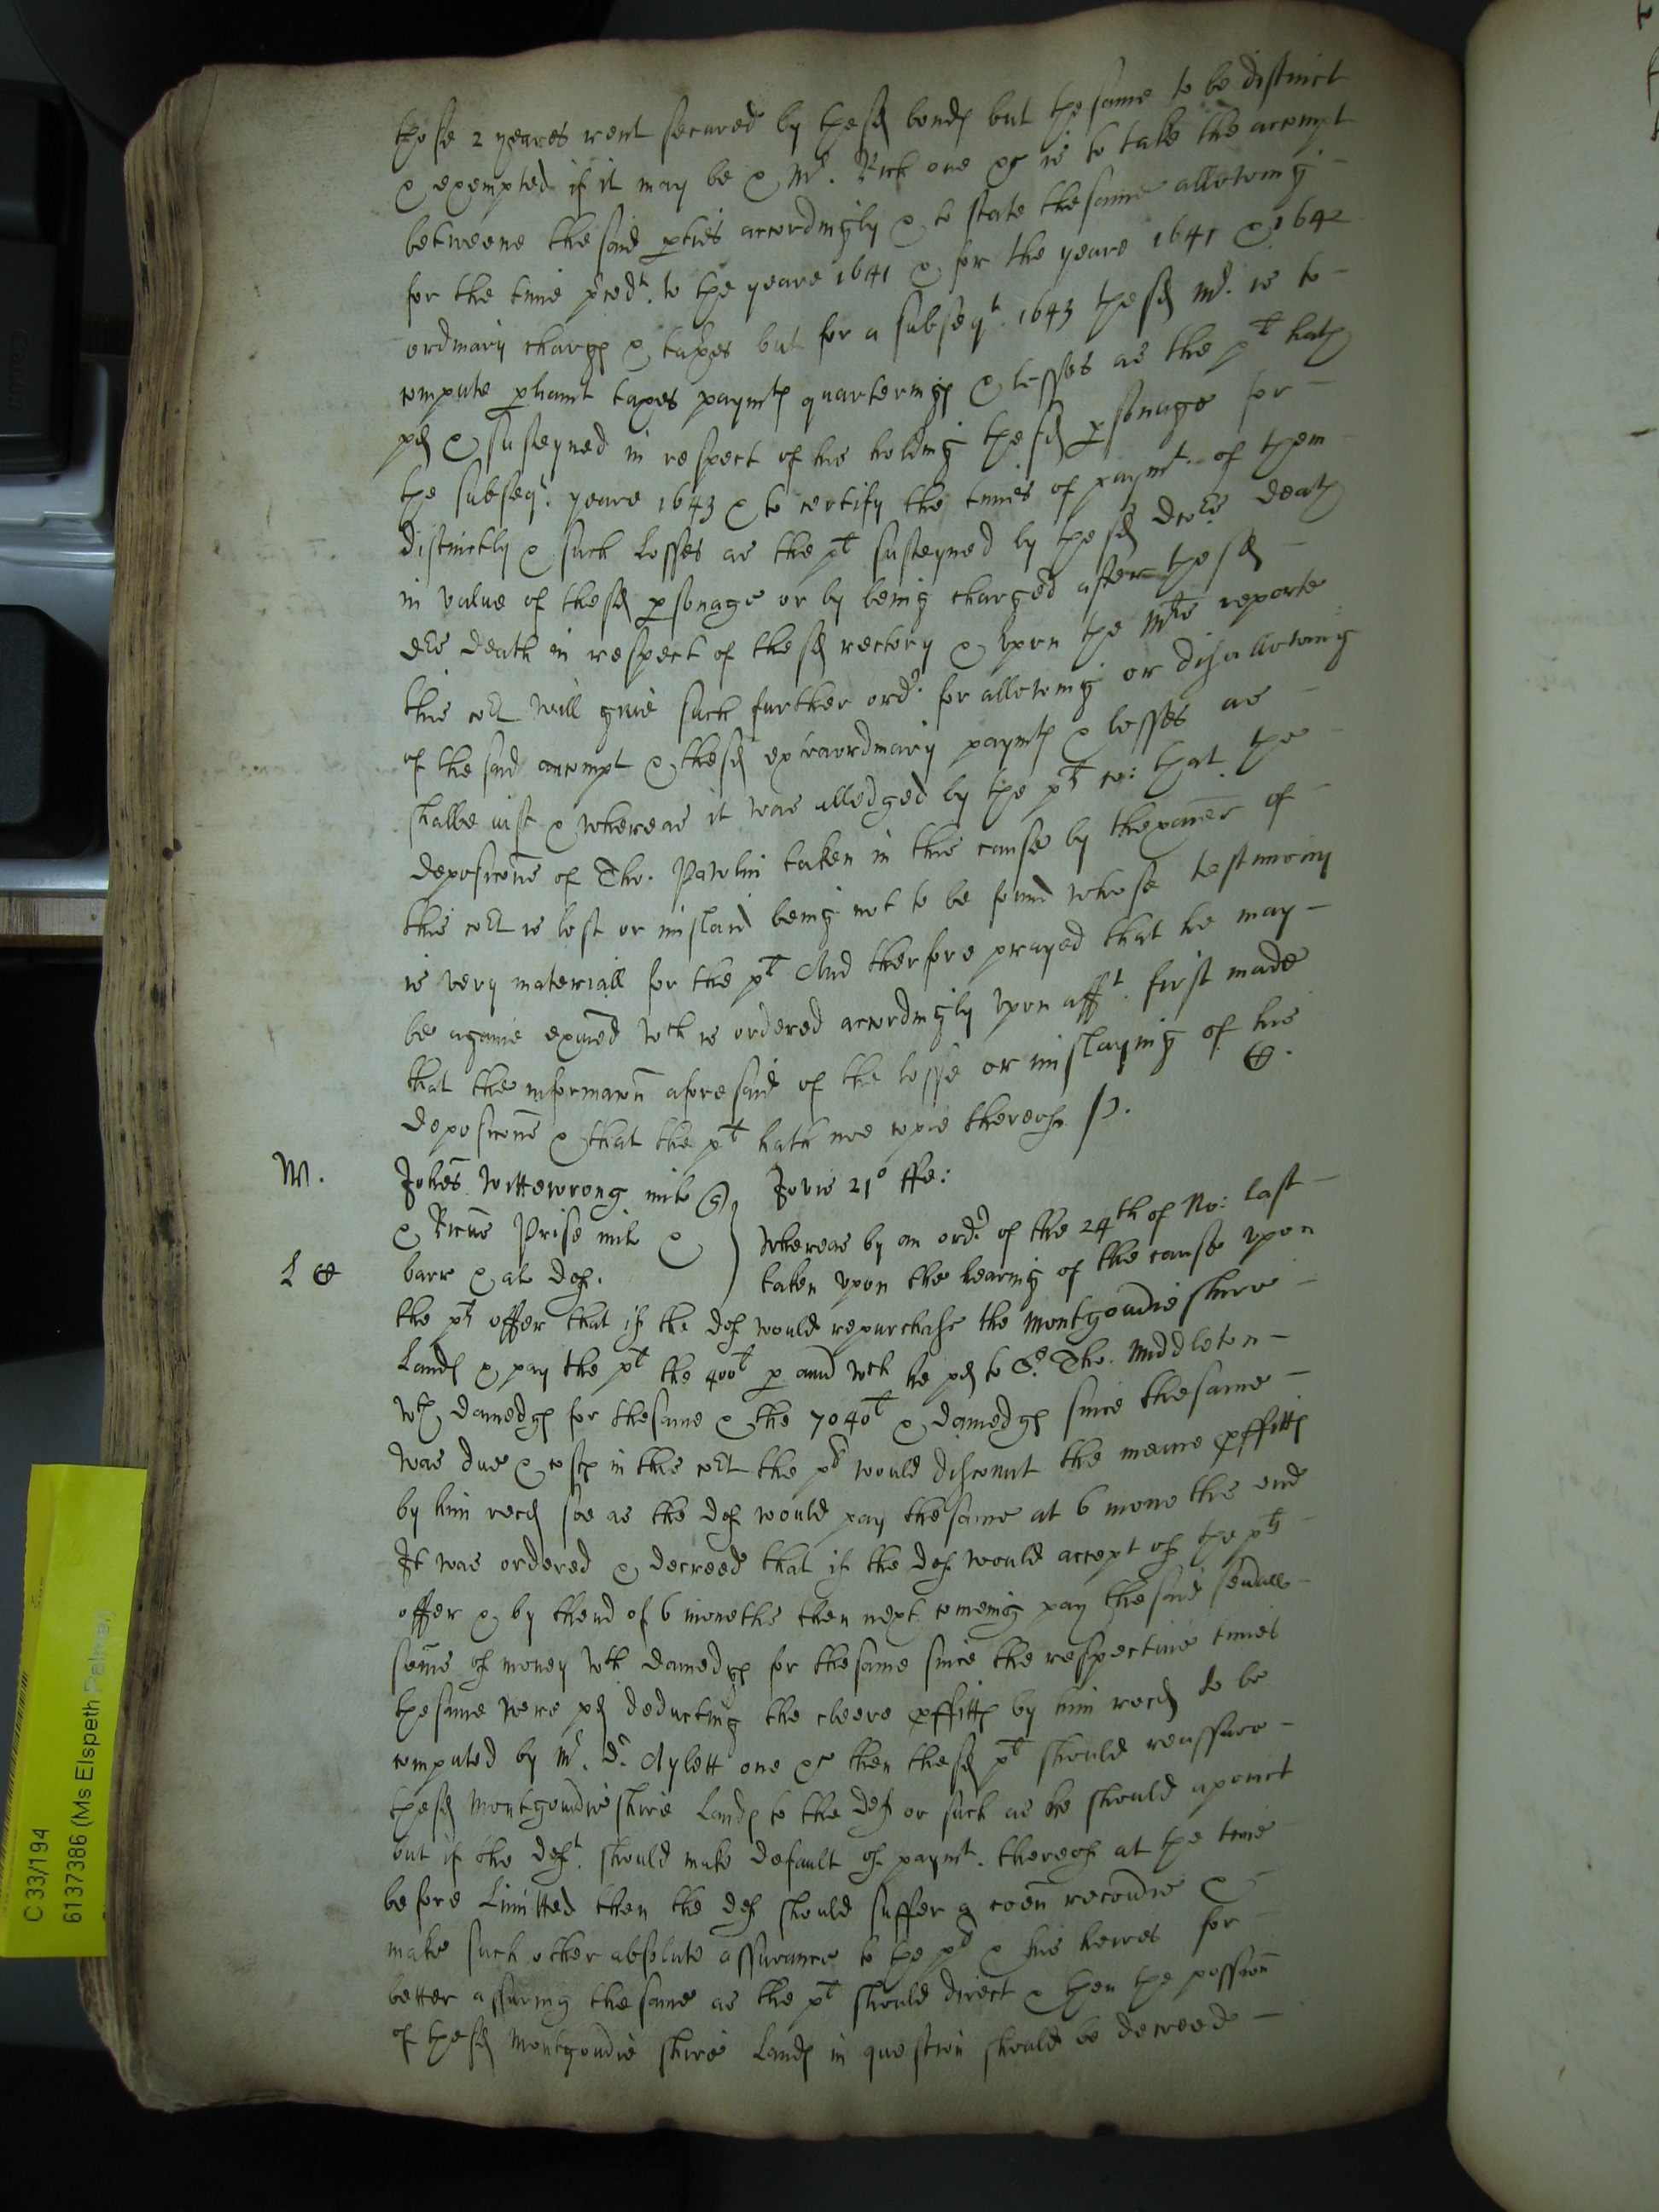 those 2 yeares rent secured by the sd bonds but the same to be distinct
& exempted if it may be & Mr. Rich one &c is to take the accompt
betweene the said pties accordingly & to state the same allowing
for the time preced't. to the yeare 1641 & for the yeare 1641 & 1642
ordinary charges & taxes but for a subseqt. 1643 the sd Mr. is to
compute pliamt taxes paymts quarterings & losses as the plt hath
pd & susteyned in respect of his holding the sd psonage for
the subseqt. yeare 1643 & to certify the times of paymt. of them
distinctly & such losses as the plt susteyned by the sd death
in value of the sd psonage or by being charged after the sd
death in respect of the sd rectory & upon the Mrs reporte
this cort will give such further ordr. for allowing or disallowing
of the said accompt & the sd extraordinary paymts & losses as
shalbe iust & whereas it was alledged by the plts co: that the
deposicons of Tho. Pawlin taken in this cause by the exaers of
this cort is lost or mislaid being not to be found whose testimony
is very materiall for the plt And therfore prayed that he may
be againe exaied wch is ordered accordingly upon afft. first made
that the informacon aforesaid of the losse or mislaying of his
deposicons & that the plt hath noe copie thereof
M.
Johes Wittewrong mil Q
& Ricus Prise mil &
L
barr & al def.
Jovis 21o ffe:
Whereas by an ordr. of the 24th of No: last
taken upon the hearing of the cause upon
the plts offer that if the def would repurchase the Montgomrie shire
Lands & pay the plt the 400l p ann wch he pd to Sr. Tho. Middleton
wth damedges for the same & the 7040l & damedges since the same
was due & costs in this cort the plt would discount the meane pffitts
by him recd soe as the def would pay the same at 6 mone ths end
It was ordered & decreed that if the def would accept of the plts
offer & by thend of 6 moneths then next comeing pay the said seuall
somes of money wth damedges for the same since the respective times
the same were pd deducting the cleere pffitts by him recd to be
computed by Mr. Dr. Aylett one &c then the sd plt should reassure
the sd Montgomrieshire Lands to the def or such as he should apoint
but if the deft. should make default of paymt. thereof at the time
before Limitted then the def should suffer a coen recovrie &
make such other absolute assurance to the plt & his heires for
better assuring the same as the plt should direct & then the possion
of the sd Montgomrie shire Lands in question should be decreed
C 33/194
6137386 (Ms Elspeth Palmer)